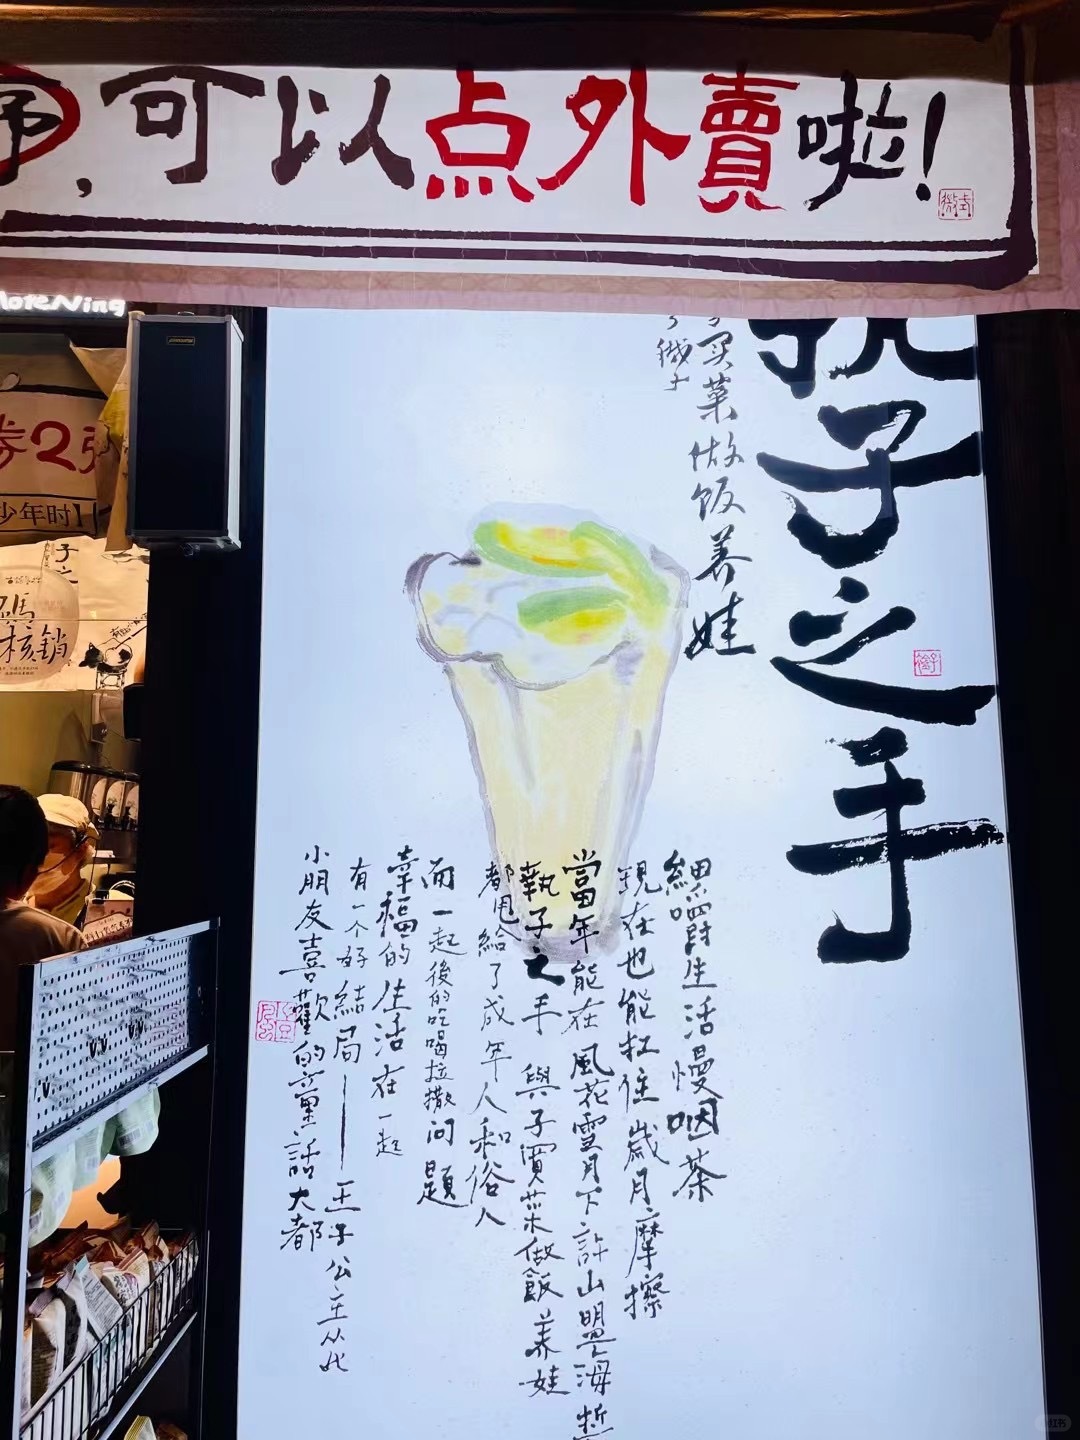 ,可以点外賣啦!
执子之手
买菜做饭养娃
小朋友喜歡的童話大都
有一个好結局——王子公主从此
幸福的生活在一起
而一起後的吃喝拉撒问題
都甩給了成年人和俗人
執子之手 與子買菜做飯养娃
當年能在風花雪月下許山盟海誓
現在也能扛住歲月摩擦
細嚼生活慢咽茶
券2张
少年时】
子之
碼
核銷